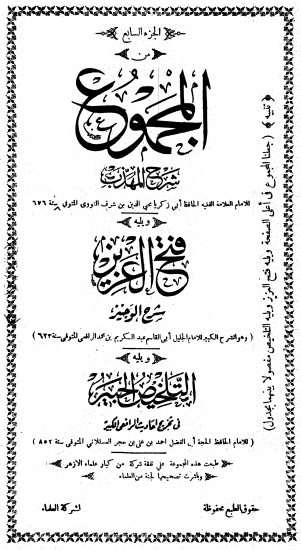 الجزء السابع
من
المجموع
شرح المهذب
للامام العلامة الفقيه الحافظ أبي زكريا محي الدين بن شرف النووي المتوفى سنة ٦٧٦
ويليه
فتح العزيز
شرح الوجيز
( وهو الشرح الكبير للامام الجليل أبي القاسم عبد الكريم بن محمد الرافعي المتوفى سنة ٦٢٣ )
ويليه
التلخيص الحبير
في تخريج أحاديث الرافعي الكبير
( للامام الحافظ الحجة أبي الفضل احمد بن علي بن حجر العسقلاني المتوفى سنة ٨٥٢ )
طبعت هذه المجموعة على نفقة شركة من كبار علماء الازهر
وباشرت تصحيحها لجنة من العلماء
حقوق الطبع محفوظة
لشركة العلماء
﴿ تنبيه ﴾ ( جعلنا المجموع في أعلى الصفحة ويليه فتح العزيز ويليه التلخيص مفصولا بينهما بجدول )